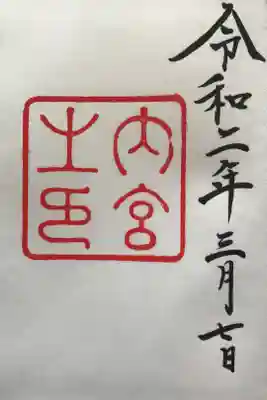 令和二年三月七日
内宮
之印